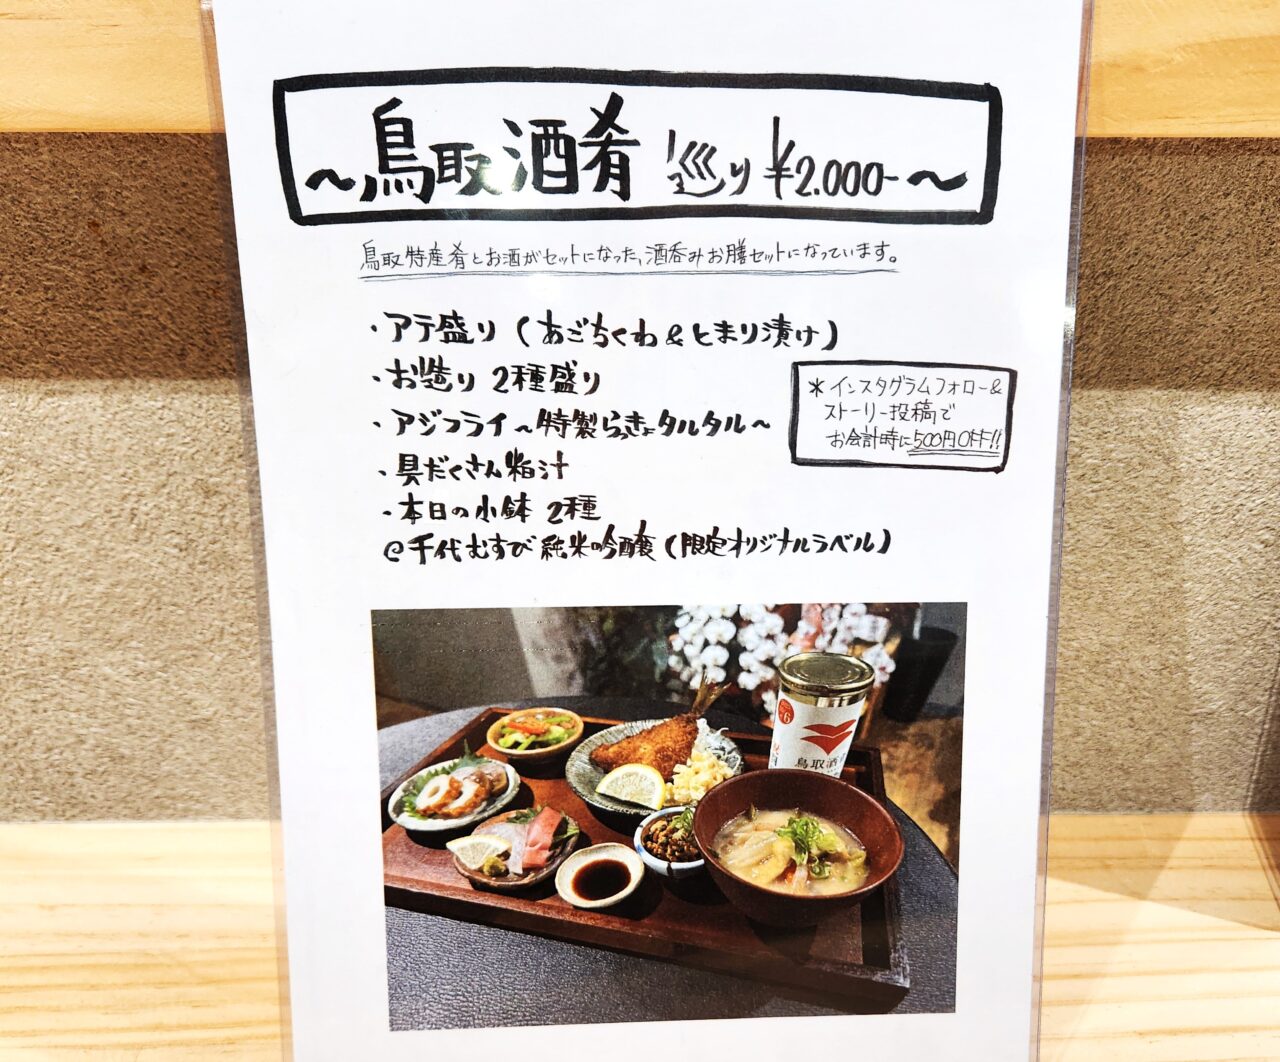 ～鳥取酒肴巡り ¥2.000-～
鳥取特産肴とお酒がセットになった、酒呑みお膳セットになっています。
・アテ盛り（あごちくわ&とまり漬け）
・お造り 2種盛り
・アジフライ～特製らっきょタルタル～
・具だくさん粕汁
・本日の小鉢 2種
@千代むすび 純米吟醸（限定オリジナルラベル）
＊インスタグラムフォロー&
ストーリー投稿で
お会計時に500円OFF!!
鳥取酒